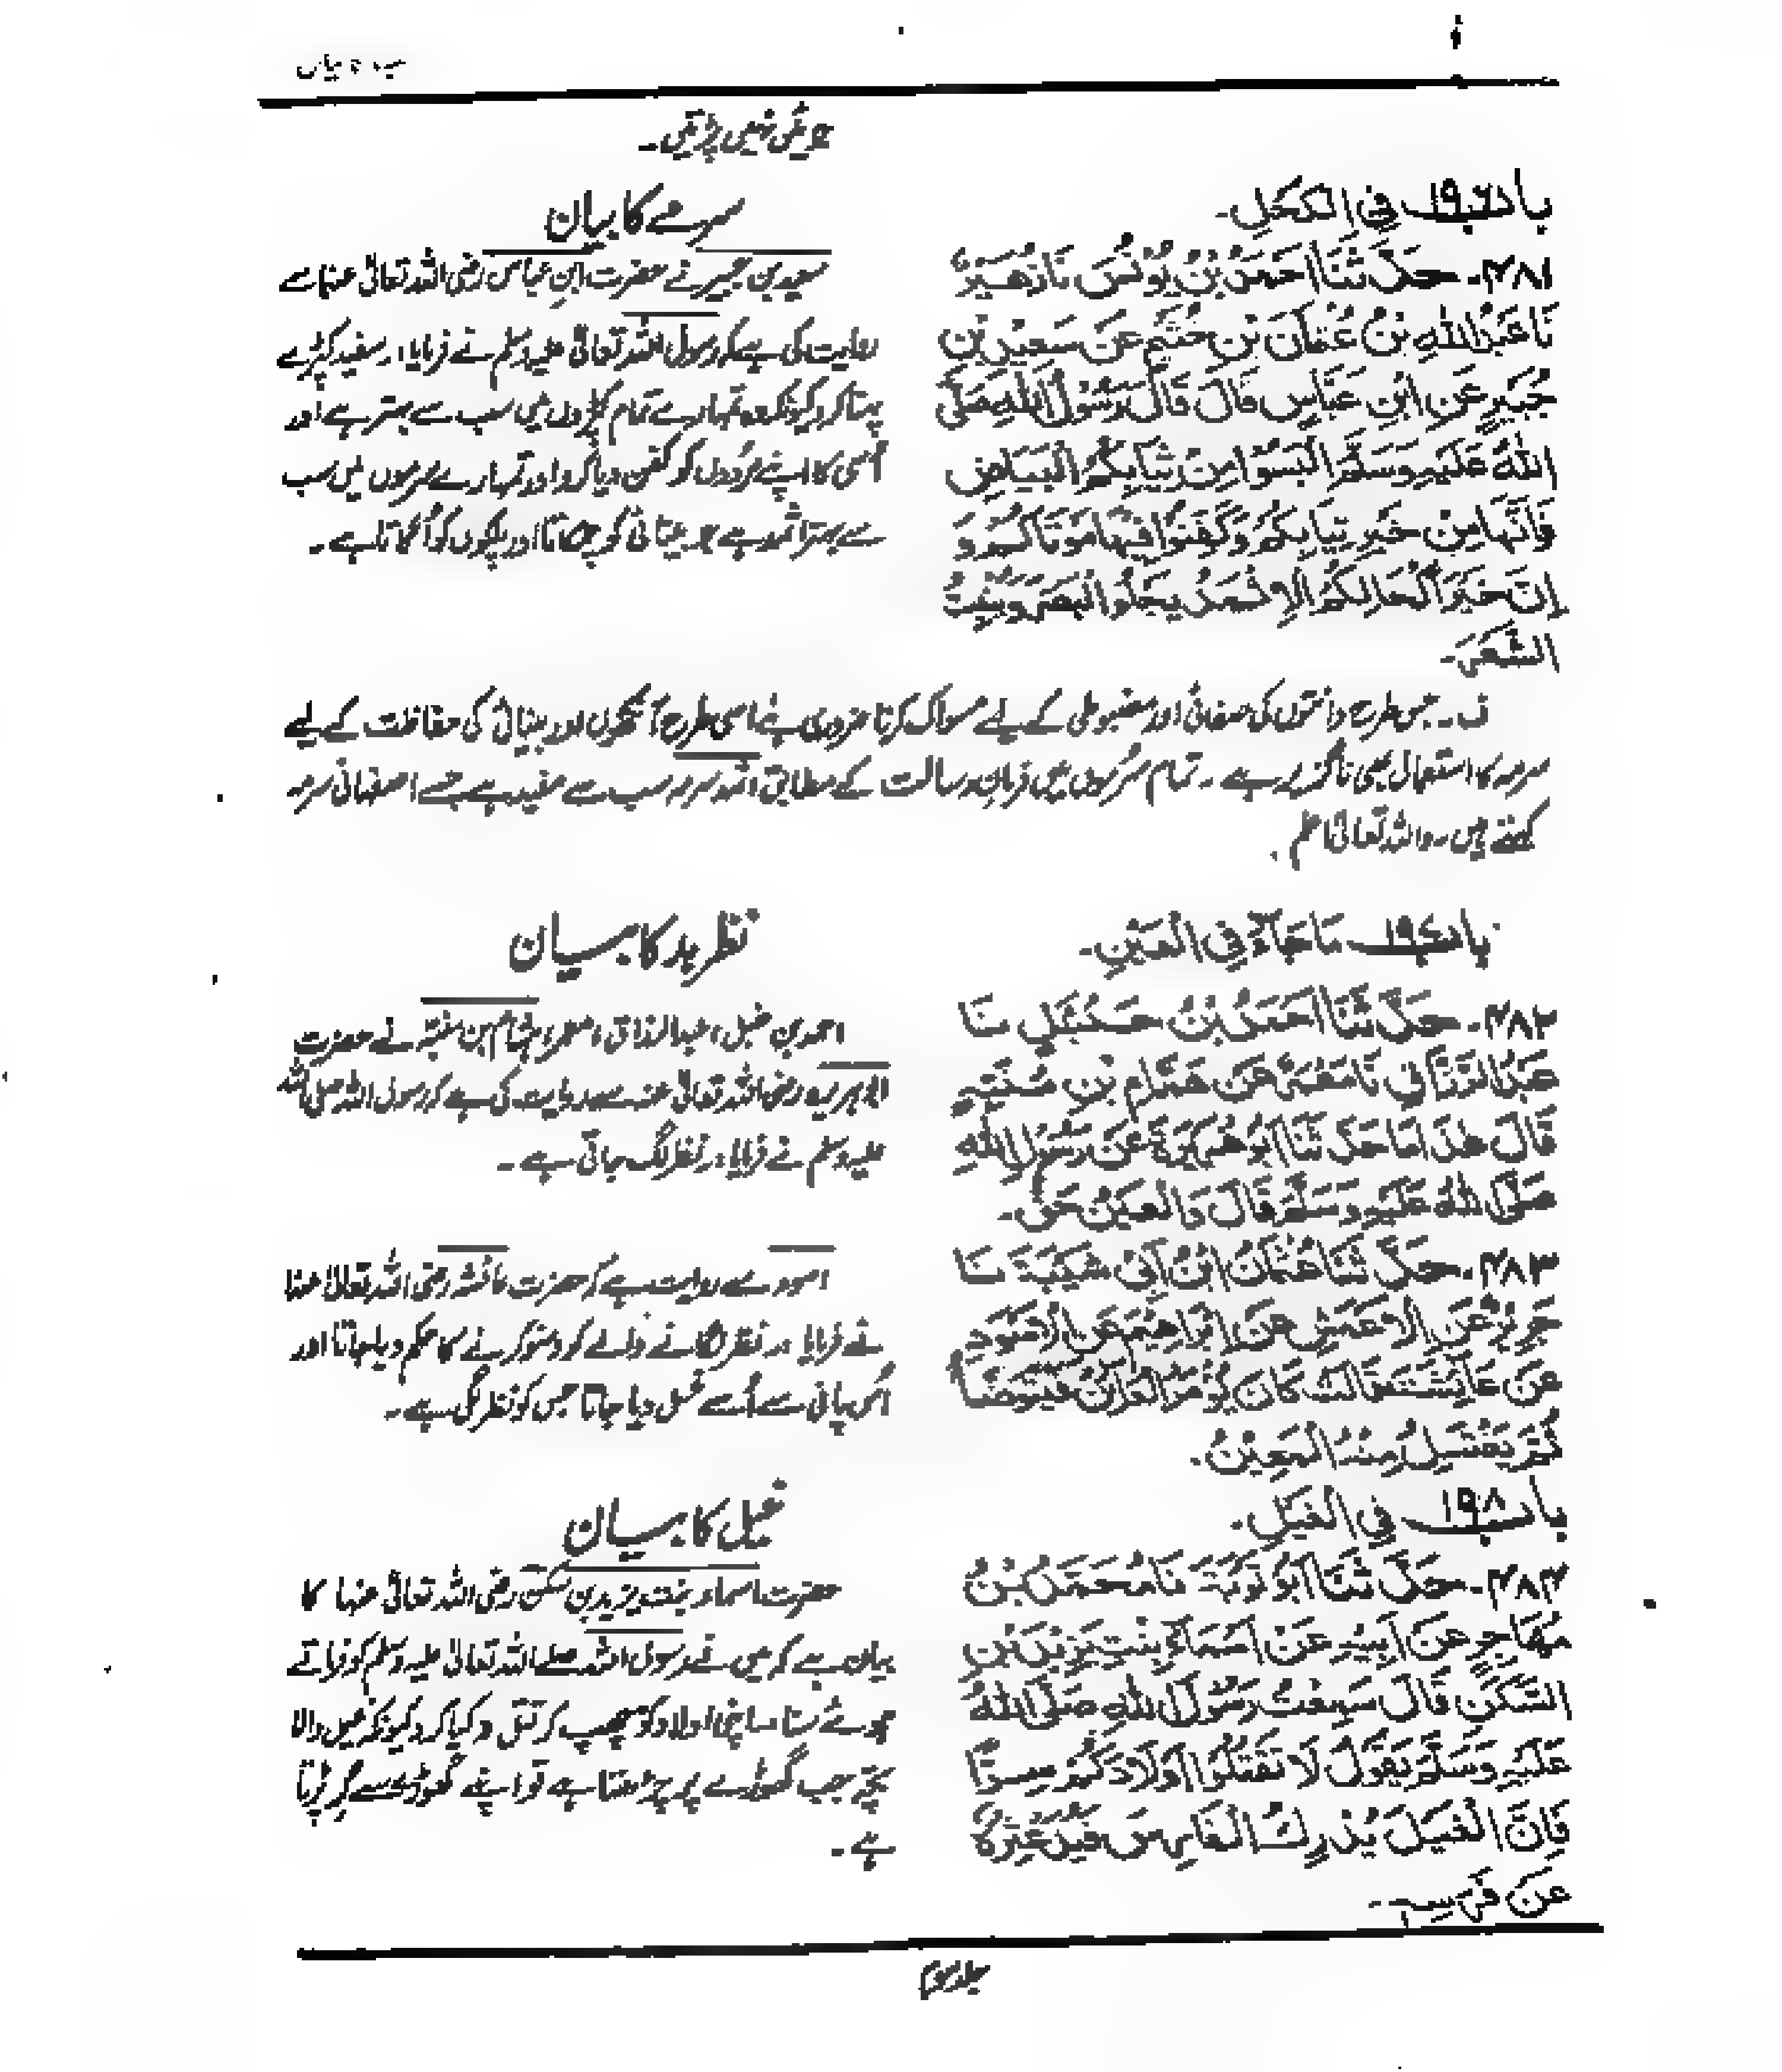 چیزیں نہیں پڑتیں۔
باب ۱۹۶ فِي الْكُحْلِ۔
۴۸۱۔ حَدَّثَنَا أَحْمَدُ بْنُ يُونُسَ نَا زُهَيْرٌ
نَا عَبْدُ اللهِ بْنُ عُثْمَانَ بْنِ خُثَيْمٍ عَنْ سَعِيْدِ بْنِ
جُبَيْرٍ عَنِ ابْنِ عَبَّاسٍ قَالَ قَالَ رَسُوْلُ اللهِ صَلَّى
اللهُ عَلَيْهِ وَسَلَّمَ الْبَسُوْا مِنْ ثِيَابِكُمُ الْبَيَاضَ
فَإِنَّهَا مِنْ خَيْرِ ثِيَابِكُمْ وَكَفِّنُوْا فِيْهَا مَوْتَاكُمْ وَ
إِنَّ خَيْرَ أَكْحَالِكُمُ الْإِثْمِدُ يَجْلُو الْبَصَرَ وَيُنْبِتُ
الشَّعْرَ۔
سرمے کا بیان
سعید بن جبیر نے حضرت ابن عباس رضی اللہ تعالیٰ عنہما سے
روایت کی ہے کہ رسول اللہ تعالیٰ علیہ وسلم نے فرمایا: سفید کپڑے
پہنا کرو کیونکہ وہ تمہارے تمام کپڑوں میں سب سے بہتر ہے اور
اُسی کا اپنے مُردوں کو کفن دیا کرو اور تمہارے سرموں میں سب
سے بہتر اثمد ہے جو بینائی کو چمکاتا اور پلکوں کو اُگاتا ہے۔
ف۔ جس طرح دانتوں کی صفائی اور مضبوطی کے لیے مسواک کرنا ضروری ہے اسی طرح آنکھوں اور بینائی کی حفاظت کے لیے
سرمہ کا استعمال بھی ناگزیر ہے۔ تمام سُرموں میں فرمانِ رسالت کے مطابق اثمد سرمہ سب سے مفید ہے جسے اصفہانی سرمہ
کہتے ہیں۔ واللہ تعالیٰ اعلم
باب ۱۹۷ مَا جَاءَ فِي الْعَيْنِ۔
۴۸۲۔ حَدَّثَنَا أَحْمَدُ بْنُ حَنْبَلٍ نَا
عَبْدُ الرَّزَّاقِ نَا مَعْمَرٌ عَنْ هَمَّامِ بْنِ مُنَبِّهٍ
قَالَ هٰذَا مَا حَدَّثَنَا أَبُوْ هُرَيْرَةَ عَنْ رَسُوْلِ اللهِ
صَلَّى اللهُ عَلَيْهِ وَسَلَّمَ قَالَ وَالْعَيْنُ حَقٌّ۔
نظر بد کا بیان
احمد بن حنبل، عبدالرزاق، معمر، ہشام بن منبّہ نے حضرت
ابوہریرہ رضی اللہ تعالیٰ عنہ سے روایت کی ہے کہ رسول اللہ صلی اللہ
علیہ وسلم نے فرمایا: نظر لگ جاتی ہے۔
۴۸۳۔ حَدَّثَنَا عُثْمَانُ ابْنُ أَبِيْ شَيْبَةَ نَا
جَرِيْرٌ عَنِ الْأَعْمَشِ عَنْ إِبْرَاهِيْمَ عَنِ الْأَسْوَدِ
عَنْ عَائِشَةَ قَالَتْ كَانَ يُؤْمَرُ الْعَائِنُ فَيَتَوَضَّأُ
ثُمَّ يَغْتَسِلُ مِنْهُ الْمَعِيْنُ۔
اسود سے روایت ہے کہ حضرت عائشہ رضی اللہ تعالیٰ عنہا
نے فرمایا: نظر لگانے والے کو وضو کرنے کا حکم دیا جاتا اور
اُس پانی سے اُسے غسل دیا جاتا جس کو نظر لگی ہے۔
باب ۱۹۸ فِي الْغَيْلِ۔
۴۸۴۔ حَدَّثَنَا أَبُوْ تَوْبَةَ نَا مُحَمَّدُ بْنُ
مُهَاجِرٍ عَنْ أَبِيْهِ عَنْ أَسْمَاءَ بِنْتِ يَزِيْدَ بْنِ
السَّكَنِ قَالَ سَمِعْتُ رَسُوْلَ اللهِ صَلَّى اللهُ
عَلَيْهِ وَسَلَّمَ يَقُوْلُ لَا تَقْتُلُوْا أَوْلَادَكُمْ سِرًّا
فَإِنَّ الْغَيْلَ يُدْرِكُ الْفَارِسَ فَيُدَعْثِرُهُ
عَنْ فَرَسِهِ۔
غیل کا بیان
حضرت اسماء بنت یزید بن سکن رضی اللہ تعالیٰ عنہا کا
بیان ہے کہ میں نے رسول اللہ صلے اللہ تعالیٰ علیہ وسلم کو فرماتے
ہوئے سنا: اپنی اولاد کو چھپ کر قتل نہ کیا کرو کیونکہ غیل والا
بچّہ جب گھوڑے پر چڑھتا ہے تو اپنے گھوڑے سے گر پڑتا
ہے۔
جلد سوم